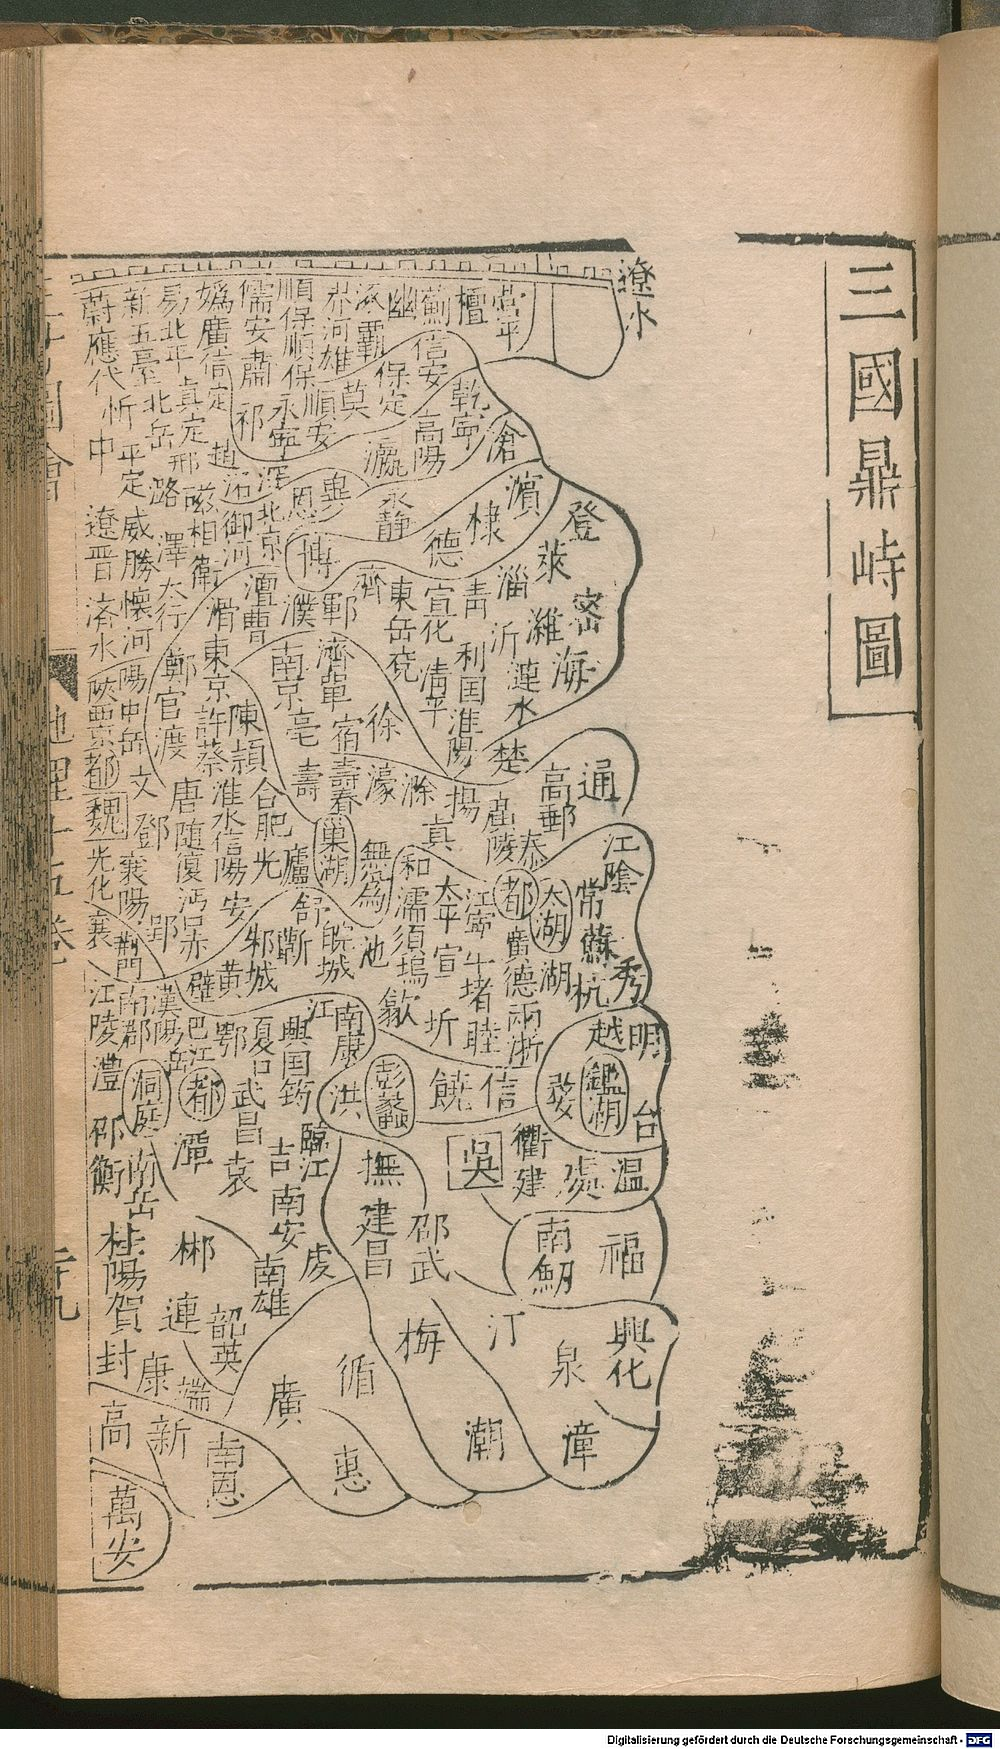 三國鼎峙圖
遼水
營平
檀
薊
信安
幽
涿霸
保定
雄
莫
順保順保
永寧
順安
儒安肅
祁
媯廣信
易北平真定
新五臺北岳
蔚應代忻中
乾寧
高陽
瀛
滄
濱
棣
德
永靜
冀
恩
博
深
北京
趙
御河
邢
磁相衛
平定
潞
威勝懷河陽中岳
澤太行
遼晉
濟水
登
萊
密
海
濰
淄
沂
漣水
青
利国淮陽
宣化
清平
齊
東岳兗
鄆
濮
澶曹
滑東京許蔡
濟單
宿
徐
南京亳
壽
陳潁
鄭官渡
陝
都
魏
文
鄧
唐隨復沔
淮水信陽
安
合肥
光
廬
巢湖
壽春
濠
滁
真
揚
楚
高郵
通
泰
無為
和
濡須塢
太平宣
江寧
牛堵睦
都
太湖
廣德
兩浙
湖
江陰
常
蘇
杭
秀
光化
襄
襄陽
郢
荊門
南郡
漢陽
江陵
澧
舒
蘄
皖城
池
歙
邾城
黃
壁
巴江
都
鄂
夏口
武昌
袁
興国筠
江
南康
洪
彭蠡
饒
信
越
明
鑑湖
婺
台
温
處
衢
建
吳
臨江
吉
南安
撫
建昌
邵武
洞庭
潭
邵
衡
南岳
桂陽
賀
封
郴
連
韶英
南雄
虔
康
端
新
高
南恩
萬安
廣
循
惠
梅
潮
汀
泉
漳
南劒
福
興化
Digitalisierung gefördert durch die Deutsche Forschungsgemeinschaft - DFG